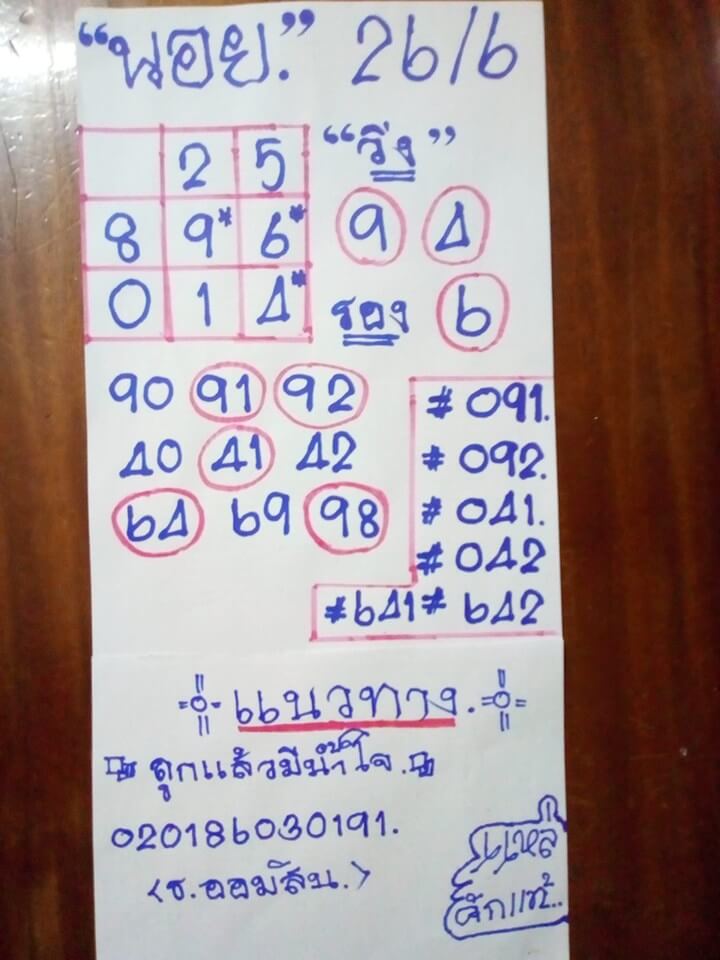 “นอย.” 26/6
2 5
8 9* 6*
0 1 4*
“วิ่ง”
9 4
รอง 6
90 91 92
40 41 42
64 69 98
# 091.
# 092.
# 041.
# 042
#641# 642
แนวทาง.
ถูกแล้วมีน้ำใจ.
020186030191.
<ธ.ออมสิน.>